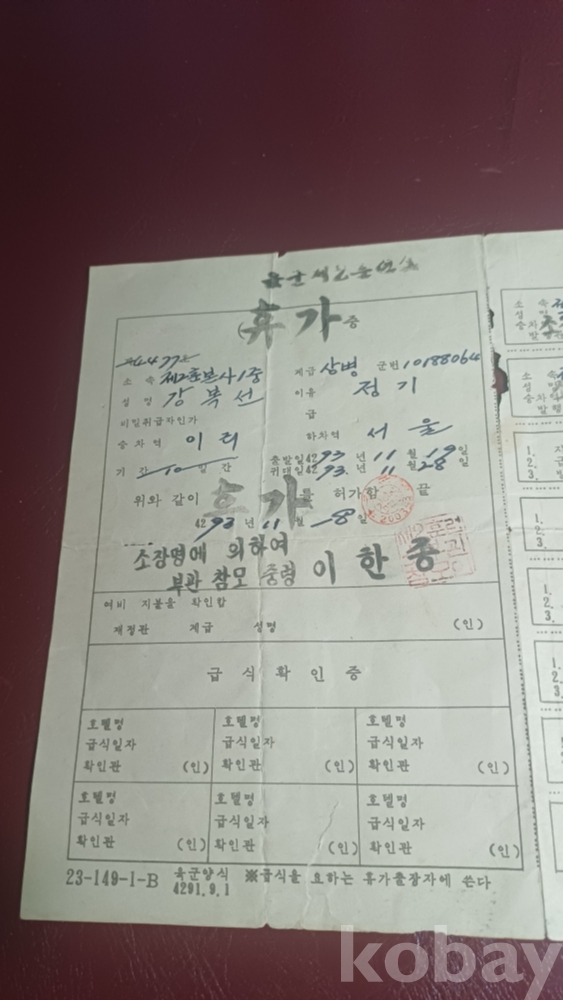 휴가 증
소속 제2훈본사1중
계급 상병 군번 10188064
성명 강복선
이유 정기
비밀취급자인가
급
승차역 이리
하차역 서울
기간 10일간
출발일 4293년 11월 19일
귀대일 4293년 11월 28일
위와 같이 휴가를 허가함 끝
4293년 11월 8일
소장명에 의하여
부관 참모 중령 이한종
여비 지불을 확인함
재정관 계급 성명 (인)
급식확인증
호텔명 호텔명 호텔명
급식일자 급식일자 급식일자
확인관 (인) 확인관 (인) 확인관 (인)
호텔명 호텔명 호텔명
급식일자 급식일자 급식일자
확인관 (인) 확인관 (인) 확인관 (인)
23-149-1-B 육군양식 4291.9.1 ※급식을 요하는 휴가출장자에 쓴다
소속
성명
승차
발행
소속
성명
승차
발행
1.
2.
3.
1.
2.
3.
1.
2.
3.
1.
2.
3.
kobay